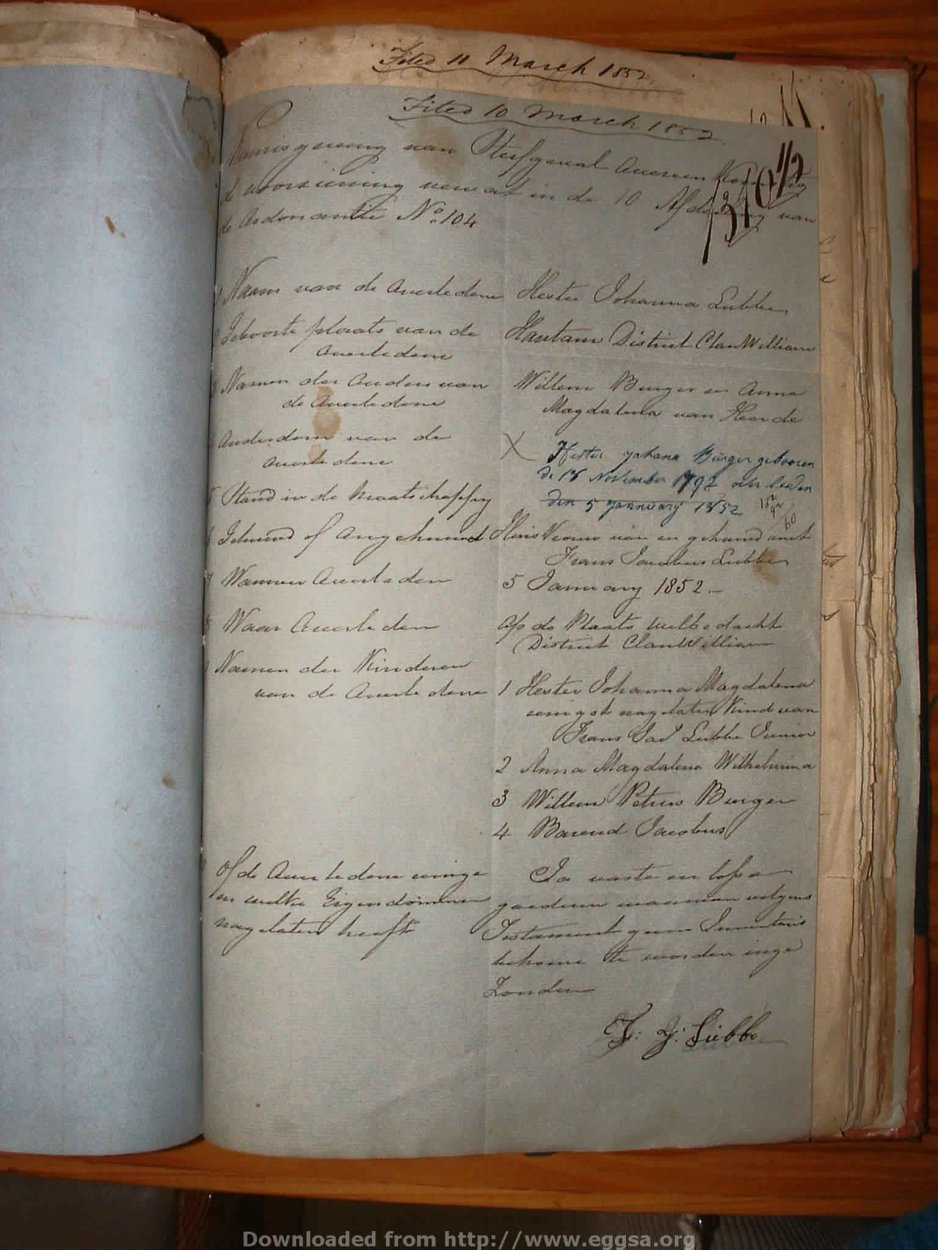 Filed 11 March 1852
Filed 10 March 1852
1340 1/2
Kennisgeving van Sterfgeval Overeenkomstig
de voorziening vervat in de 10 Afdeeling van
de Ordonnantie No. 104
1 Naam van de Overledene Hester Johanna Lubbe
2 Geboorte plaats van de Hantam District ClanWilliam
Overledene
3 Namen der Ouders van Willem Burger en Anna
de Overledene Magdalena van Heerde
Ouderdom van de X Hester Johana Bürger gebooren
Overledene de 18 November 1792 overleeden
den 5 Jannuarij 1852
5 Stand in de Maatschappy
6 Gehuwd of Ongehuwd Huis Vrouw van en gehuwd met
Frans Jacobus Lubbe
7 Wanneer Overleden 5 January 1852 -
8 Waar Overleden Op de Plaats welbedacht
District ClanWilliam
9 Namen der Kinderen
van de Overledene 1 Hester Johanna Magdalena
eenigst nagelaten Kind van
Frans Jacs Lubbe Junior
2 Anna Magdalena Wilhelmina
3 Willem Petrus Burger
4 Barend Jacobus
Of de Overledene eenige Ja vaste en losse
en welke Eigendommen goederen waarvan volgens
nagelaten heeft Testament geen Inventaris
behoeve te worden inge
zonden
F: J: Lübbe
Downloaded from http://www.eggsa.org